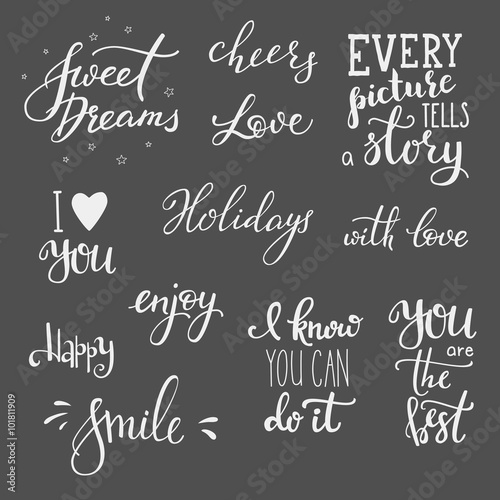 Sweet
Dreams
cheers
Love
EVERY
picture
TELLS
a story
I ♥
you
Holidays
with love
enjoy
Happy
Smile
I know
YOU CAN
do it
you
are
the
best
Adobe Stock
#101811909